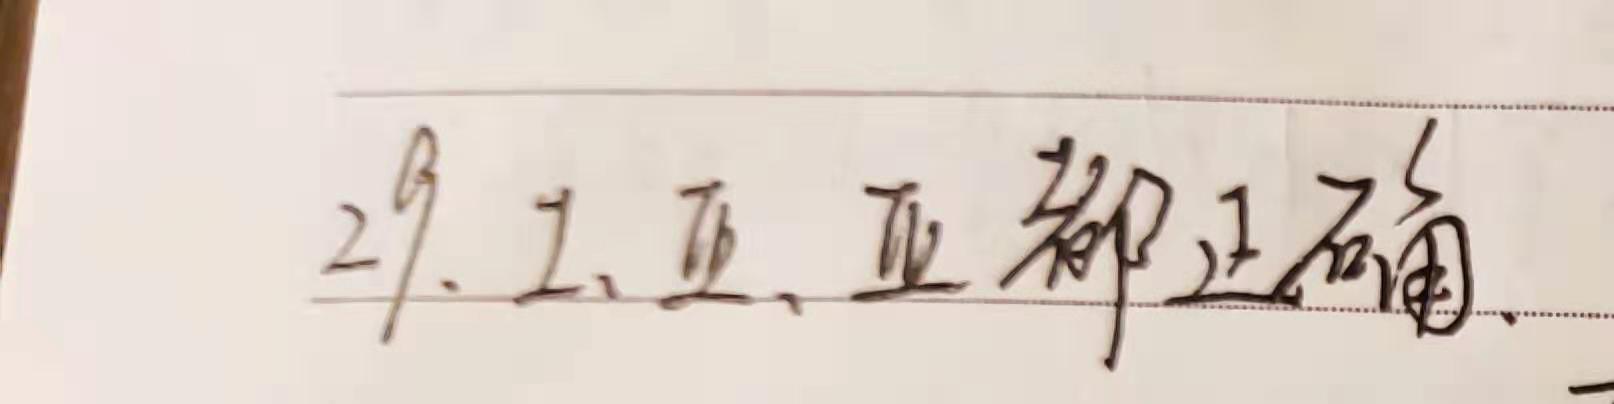 29. I、II、III都正确.